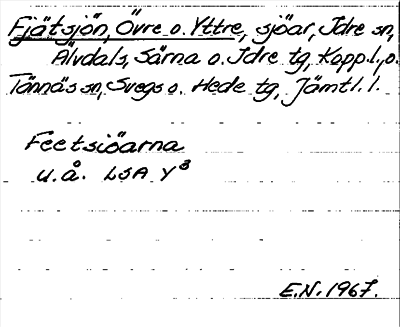 Fjätsjön, Övre o. Yttre, sjöar, Idre sn,
Älvdals, Särna o. Idre tg, Kopp. l., o.
Tännäs sn, Svegs o. Hede tg, Jämtl. l.
Feetsiöarna
u.å. LSA Y⁸
E.N. 1967.